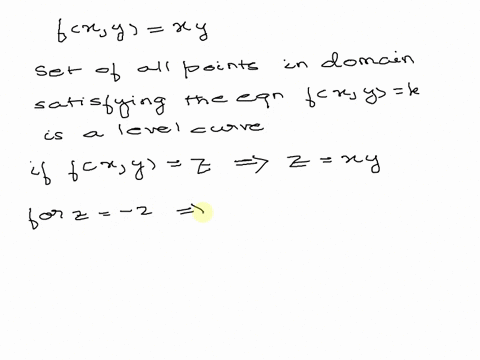 f(x,y) = xy
set of all points in domain
satisfying the eqn f(x,y) = k
is a level curve
if f(x,y) = z ⇒ z = xy
for z = -2 ⇒